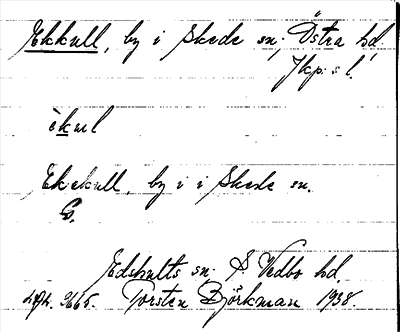 Ekkull, by i Skede sn; Östra hd.
Jkp:s l.
èkul
Ekekull, by i i Skede sn.
G.
Edshults sn. S Vedbo hd.
Torsten Björkman 1938.